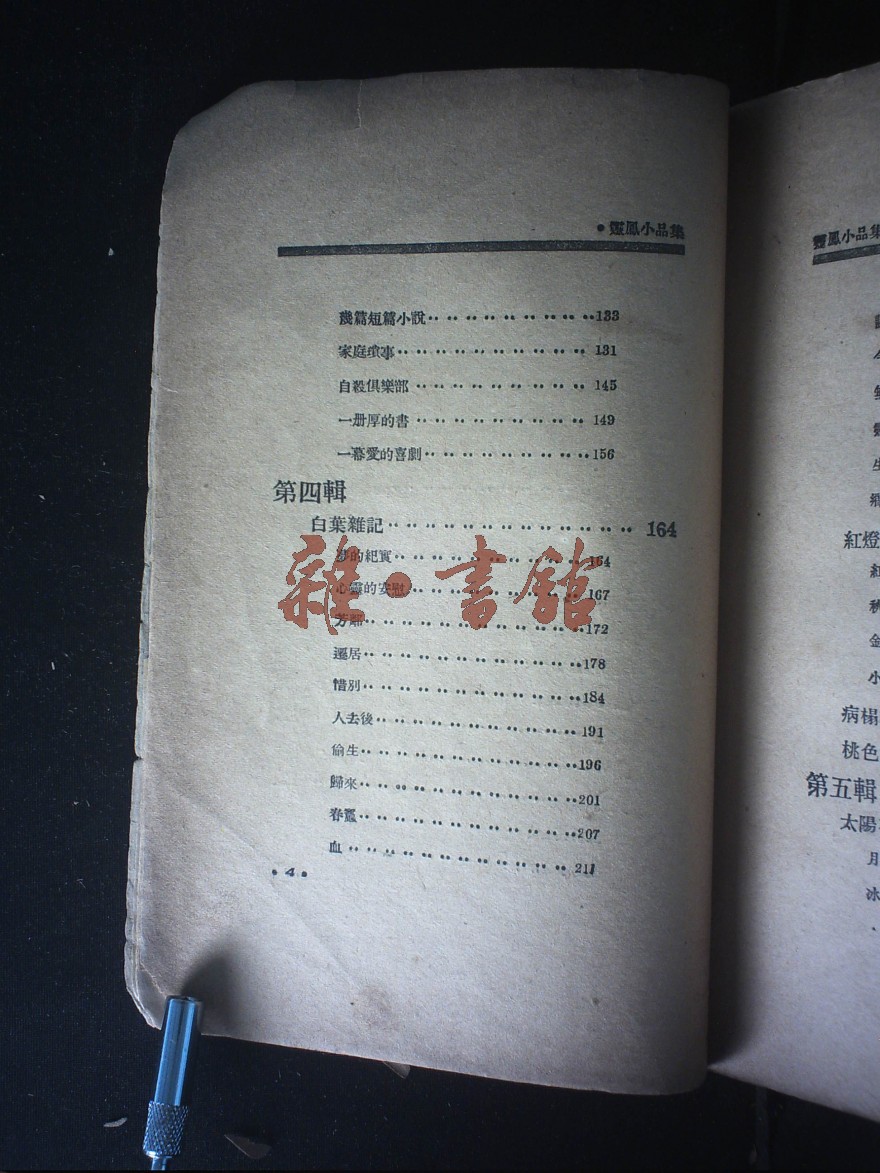 • 靈鳳小品集
幾篇短篇小說‥‥‥‥‥‥‥‥‥133
家庭瑣事‥‥‥‥‥‥‥‥‥‥131
自殺俱樂部‥‥‥‥‥‥‥‥‥145
一册厚的書‥‥‥‥‥‥‥‥‥149
一幕愛的喜劇‥‥‥‥‥‥‥‥‥156
第四輯
白葉雜記‥‥‥‥‥‥‥‥‥‥‥164
夢的紀實‥‥‥‥‥‥‥‥‥‥164
心靈的安慰‥‥‥‥‥‥‥‥‥167
芳鄰‥‥‥‥‥‥‥‥‥‥‥‥172
遷居‥‥‥‥‥‥‥‥‥‥‥‥178
惜別‥‥‥‥‥‥‥‥‥‥‥‥184
人去後‥‥‥‥‥‥‥‥‥‥‥191
偷生‥‥‥‥‥‥‥‥‥‥‥‥196
歸來‥‥‥‥‥‥‥‥‥‥‥‥201
春蠶‥‥‥‥‥‥‥‥‥‥‥‥207
血‥‥‥‥‥‥‥‥‥‥‥‥‥211
• 4 •
雜·書館
靈鳳小品集
紅燈
金
小
病榻
桃色
第五輯
太陽
月
冰